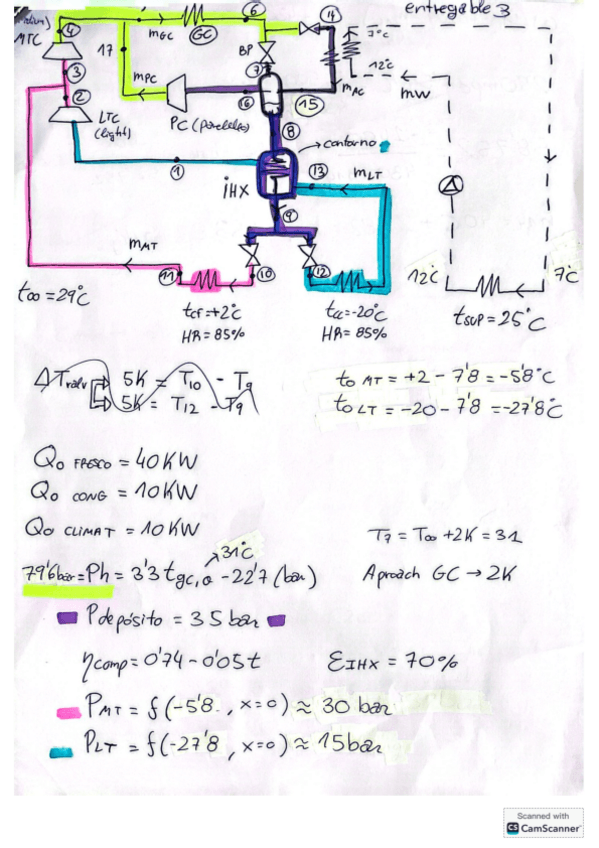 entregable 3
MTC
4
3
2
LTC
(light)
17
mGC
GC
6
14
7°C
BP
7
mPC
PC (paralelo)
16
15
mAC
12°C
mW
8
→ contorno
13
mLT
1
iHX
9
mMT
11
10
12
12°C
7°C
too = 29°C
tCF = +2°C
HR = 85%
tCC = -20°C
HR = 85%
tSUP = 25°C
ΔTralv
5K = T10 - T9
5K = T12 - T9
to MT = +2 - 7'8 = -5'8°C
to LT = -20 - 7'8 = -27'8°C
Qo FRESCO = 40 KW
Qo CONG = 10 KW
Qo CLIMAT = 10 KW
T7 = Too + 2K = 31
31°C
79'6bar = Ph = 3'3 tgc,o - 22'7 (bar)
Aproach GC → 2K
Pdepósito = 35 bar
ηcomp = 0'74 - 0'05 t
εIHX = 70%
PMT = f(-5'8, x=0) ≈ 30 bar
PLT = f(-27'8, x=0) ≈ 15bar
Scanned with
CS CamScanner